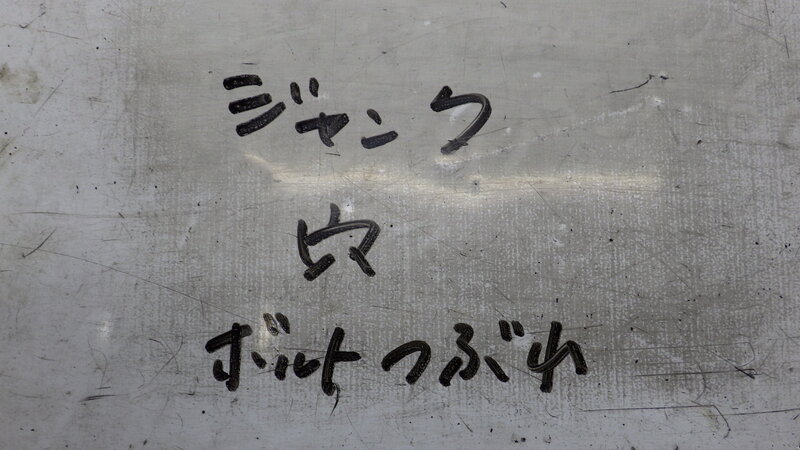 ジャンク
穴
ボルトつぶれ